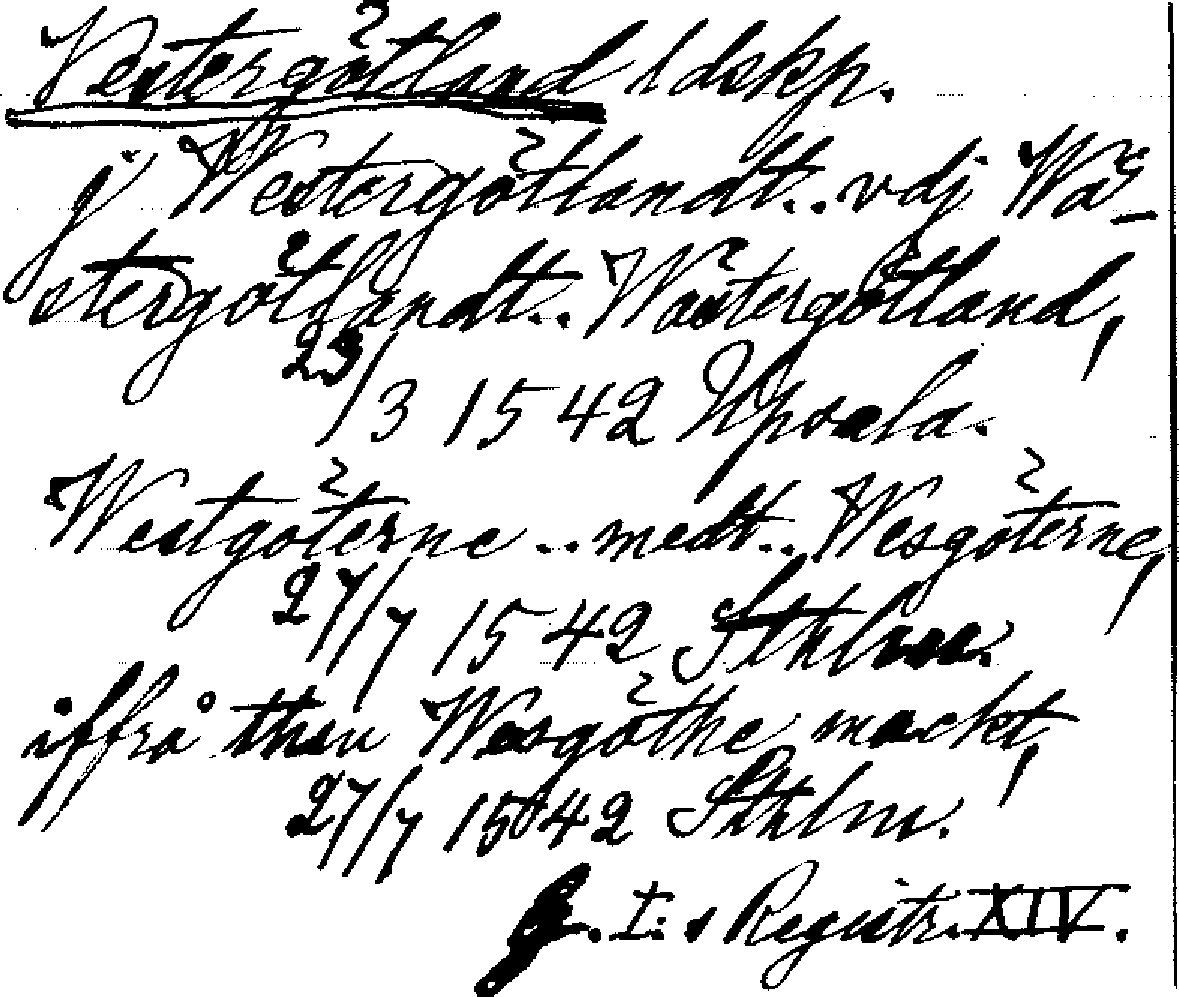 Vestergötland ldskp.
j Westergötlandt.. vdj Wä-
stergötlandt.. Wästergötland,
23/3 1542 Upsala.
Westgöterne .. medt.. Wesgöterne,
27/7 1542 Sthlm.
iffrå then Wesgöthe mackt,
27/7 1542 Sthlm.
G. I:s Registr. XIV.